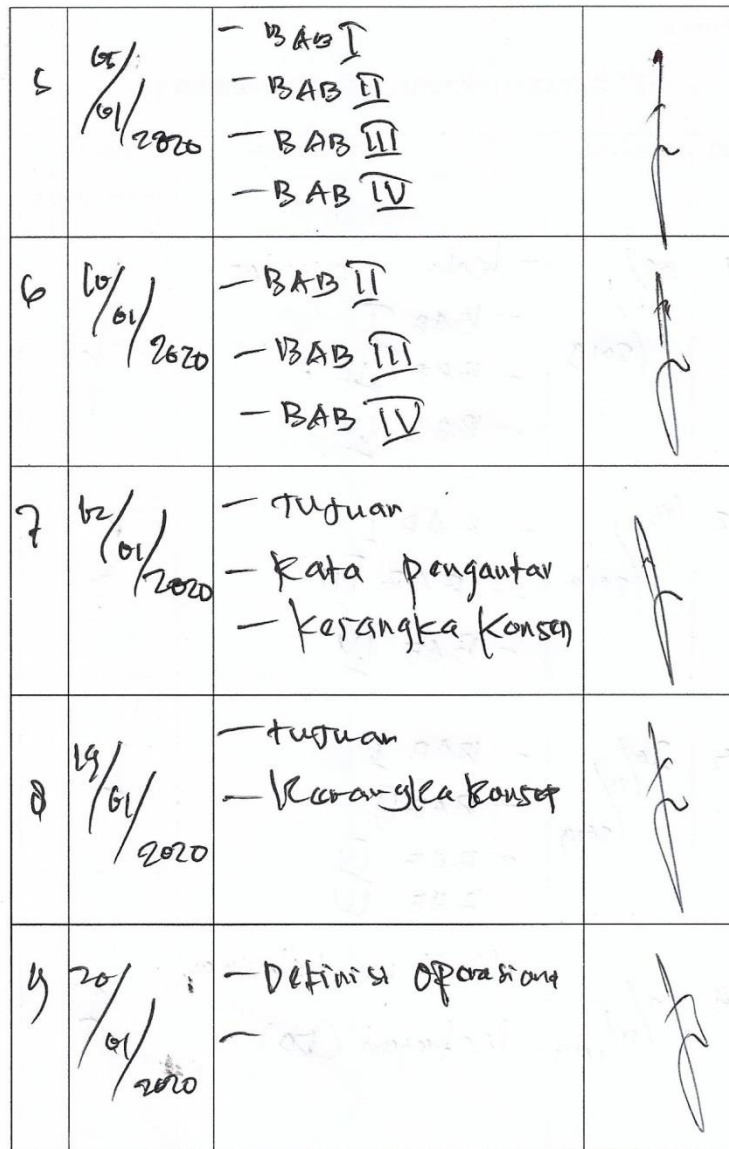 5
05/01/2020
- BAB I
- BAB II
- BAB III
- BAB IV
6
10/01/2020
- BAB II
- BAB III
- BAB IV
7
12/01/2020
- Tujuan
- Kata pengantar
- Kerangka Konsep
8
19/01/2020
- tujuan
- Kerangka Konsep
9
20/01/2020
- Definisi Operasiona
-